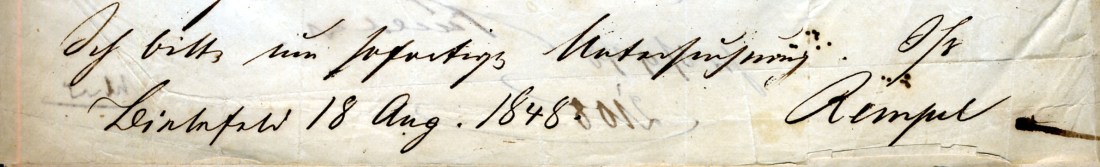 Ich bitte um sofortige Untersuchung. Ihr
Bielefeld 18 Aug. 1848. Rempel